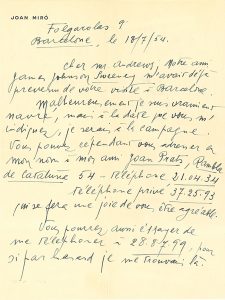 JOAN MIRÓ
Folgarolas 9
Barcelone, le 18/7/54.
Cher Mr Andrews, Notre ami
James Johnson Sweeney m'avait déjà
prévenu de votre visite à Barcelone.
Malheureusement je suis vraiment
navré, mais à la date que vous m'
indiquez, je serais à la campagne.
Vous pouvez cependant vous adresser en
mon nom à mon ami Joan Prats, Rambla
de Cataluña 54 - Téléphone 21.04.34
téléphone privé 37.25.93
qui se fera une joie de vous être agréable.
Vous pourrez aussi essayer de
me téléphoner à 28.8.99, pour
si par hasard je me trouvais là.